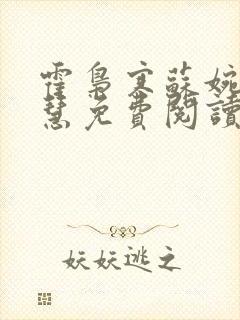 霍梟寒蘇婉
慧免費閱讀
妖妖逃之